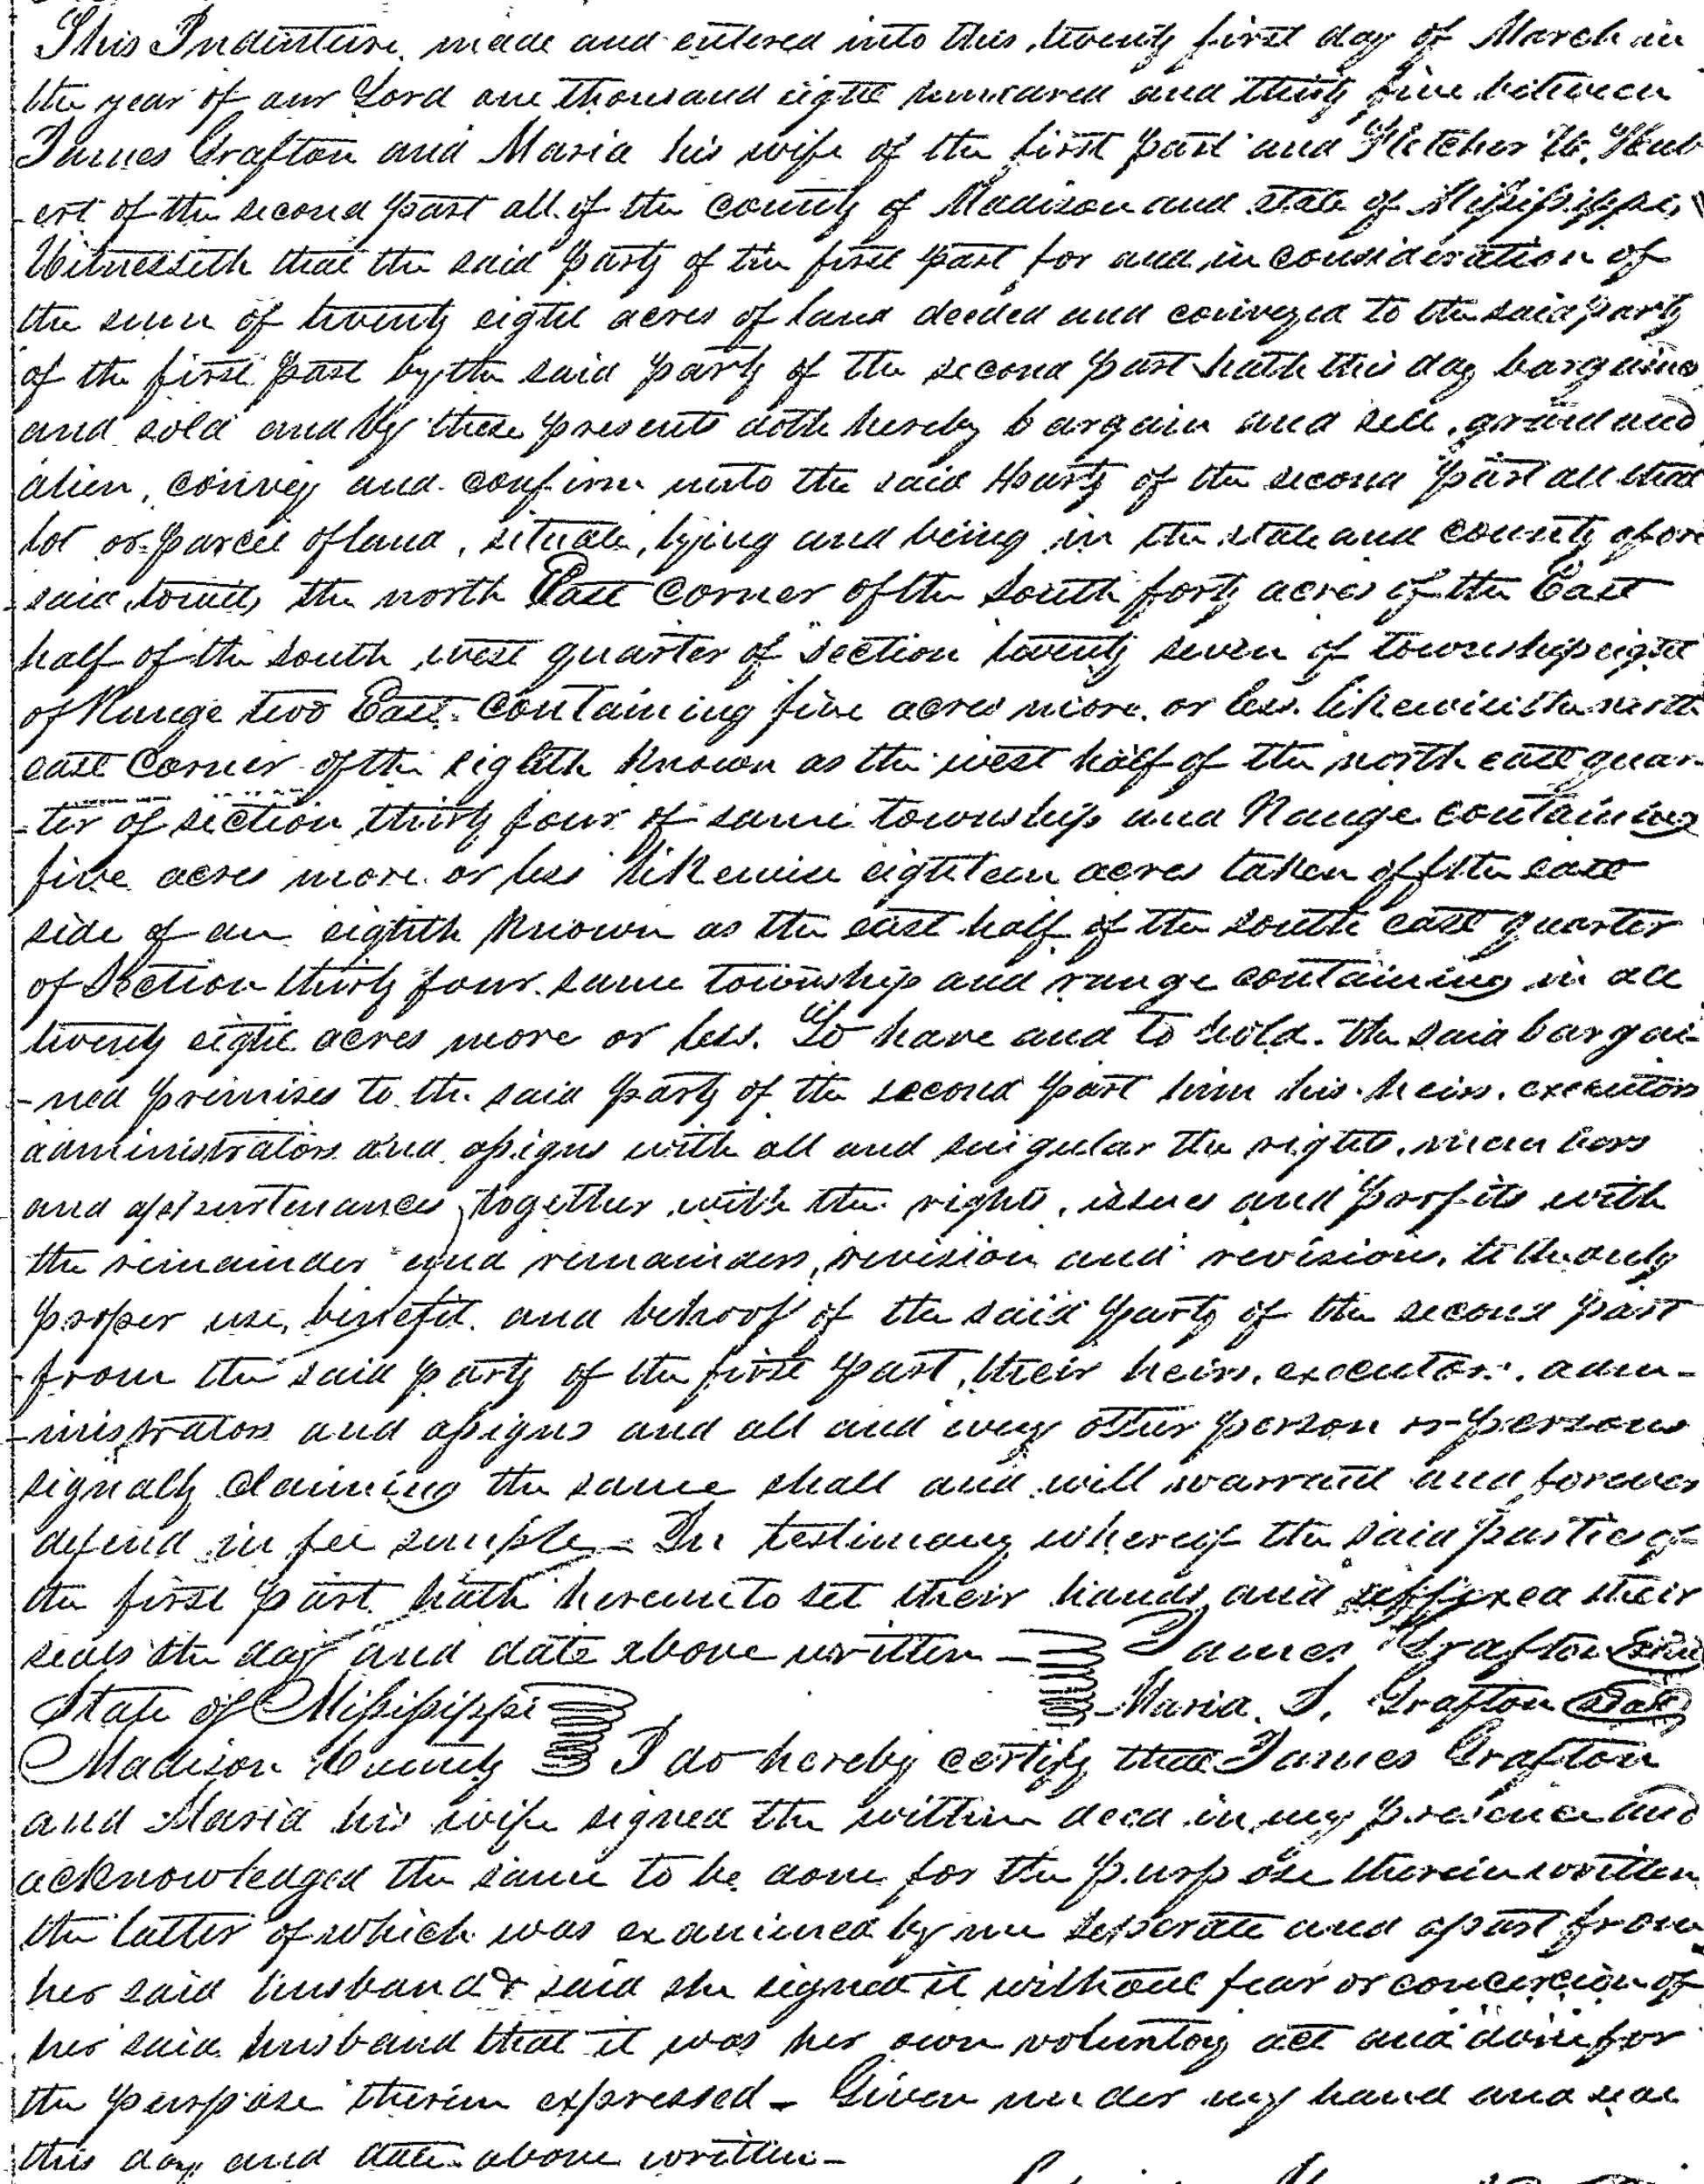 This Indenture, made and entered into this, twenty first day of March in
the year of our Lord one thousand eight hundred and thirty five between
James Grafton and Maria his wife of the first part and Fletcher W. Hub
-ert of the second part all of the county of Madison and state of Mississippi,
Witnesseth that the said party of the first part for and in consideration of
the sum of twenty eight acres of land deeded and conveyed to the said party
of the first part by the said party of the second part hath this day bargained
and sold and by these presents doth hereby bargain and sell, grant and
alien, convey and confirm unto the said party of the second part all that
lot or parcel of land, situate, lying and being in the state and county afore
-said, towit, the north East corner of the south forty acres of the East
half of the south west quarter of section twenty seven of township eight
of Range two East, containing five acres more or less. likewise the north
east corner of the eighth known as the west half of the north east quar-
-ter of section thirty four of same township and Range containing
five acres more or less likewise eighteen acres taken off the east
side of an eighth known as the east half of the south east quarter
of Section thirty four same township and range containing in all
twenty eight acres more or less. To have and to hold the said bargai-
-ned premises to the said party of the second part him his heirs, executors
administrators and assigns with all and singular the rights, members
and appurtenances, together with the rights, issues and porfits with
the remainder and remainders, revision and revisions, to the only
proper use, benefit and behoof of the said party of the second part
from the said party of the first part, their heirs, executors, adm-
-inistrators and assigns and all and every other person or persons
signally claiming the same shall and will warrant and forever
defend in fee simple - In testimony whereof the said parties of
the first part hath hereunto set their hands and affixed their
seals the day and date above written - James Grafton Seal
State of Mississippi Maria S. Grafton Seal
Madison County I do hereby certify that James Grafton
and Maria his wife signed the within deed in my presence and
acknowledged the same to be done for the purpose therein written
the latter of which was examined by me seperate and apart from
her said husband & said she signed it without fear or concercion of
her said husband that it was her own voluntary act and done for
the purpose therein expressed - Given under my hand and seal
this day and date above written -